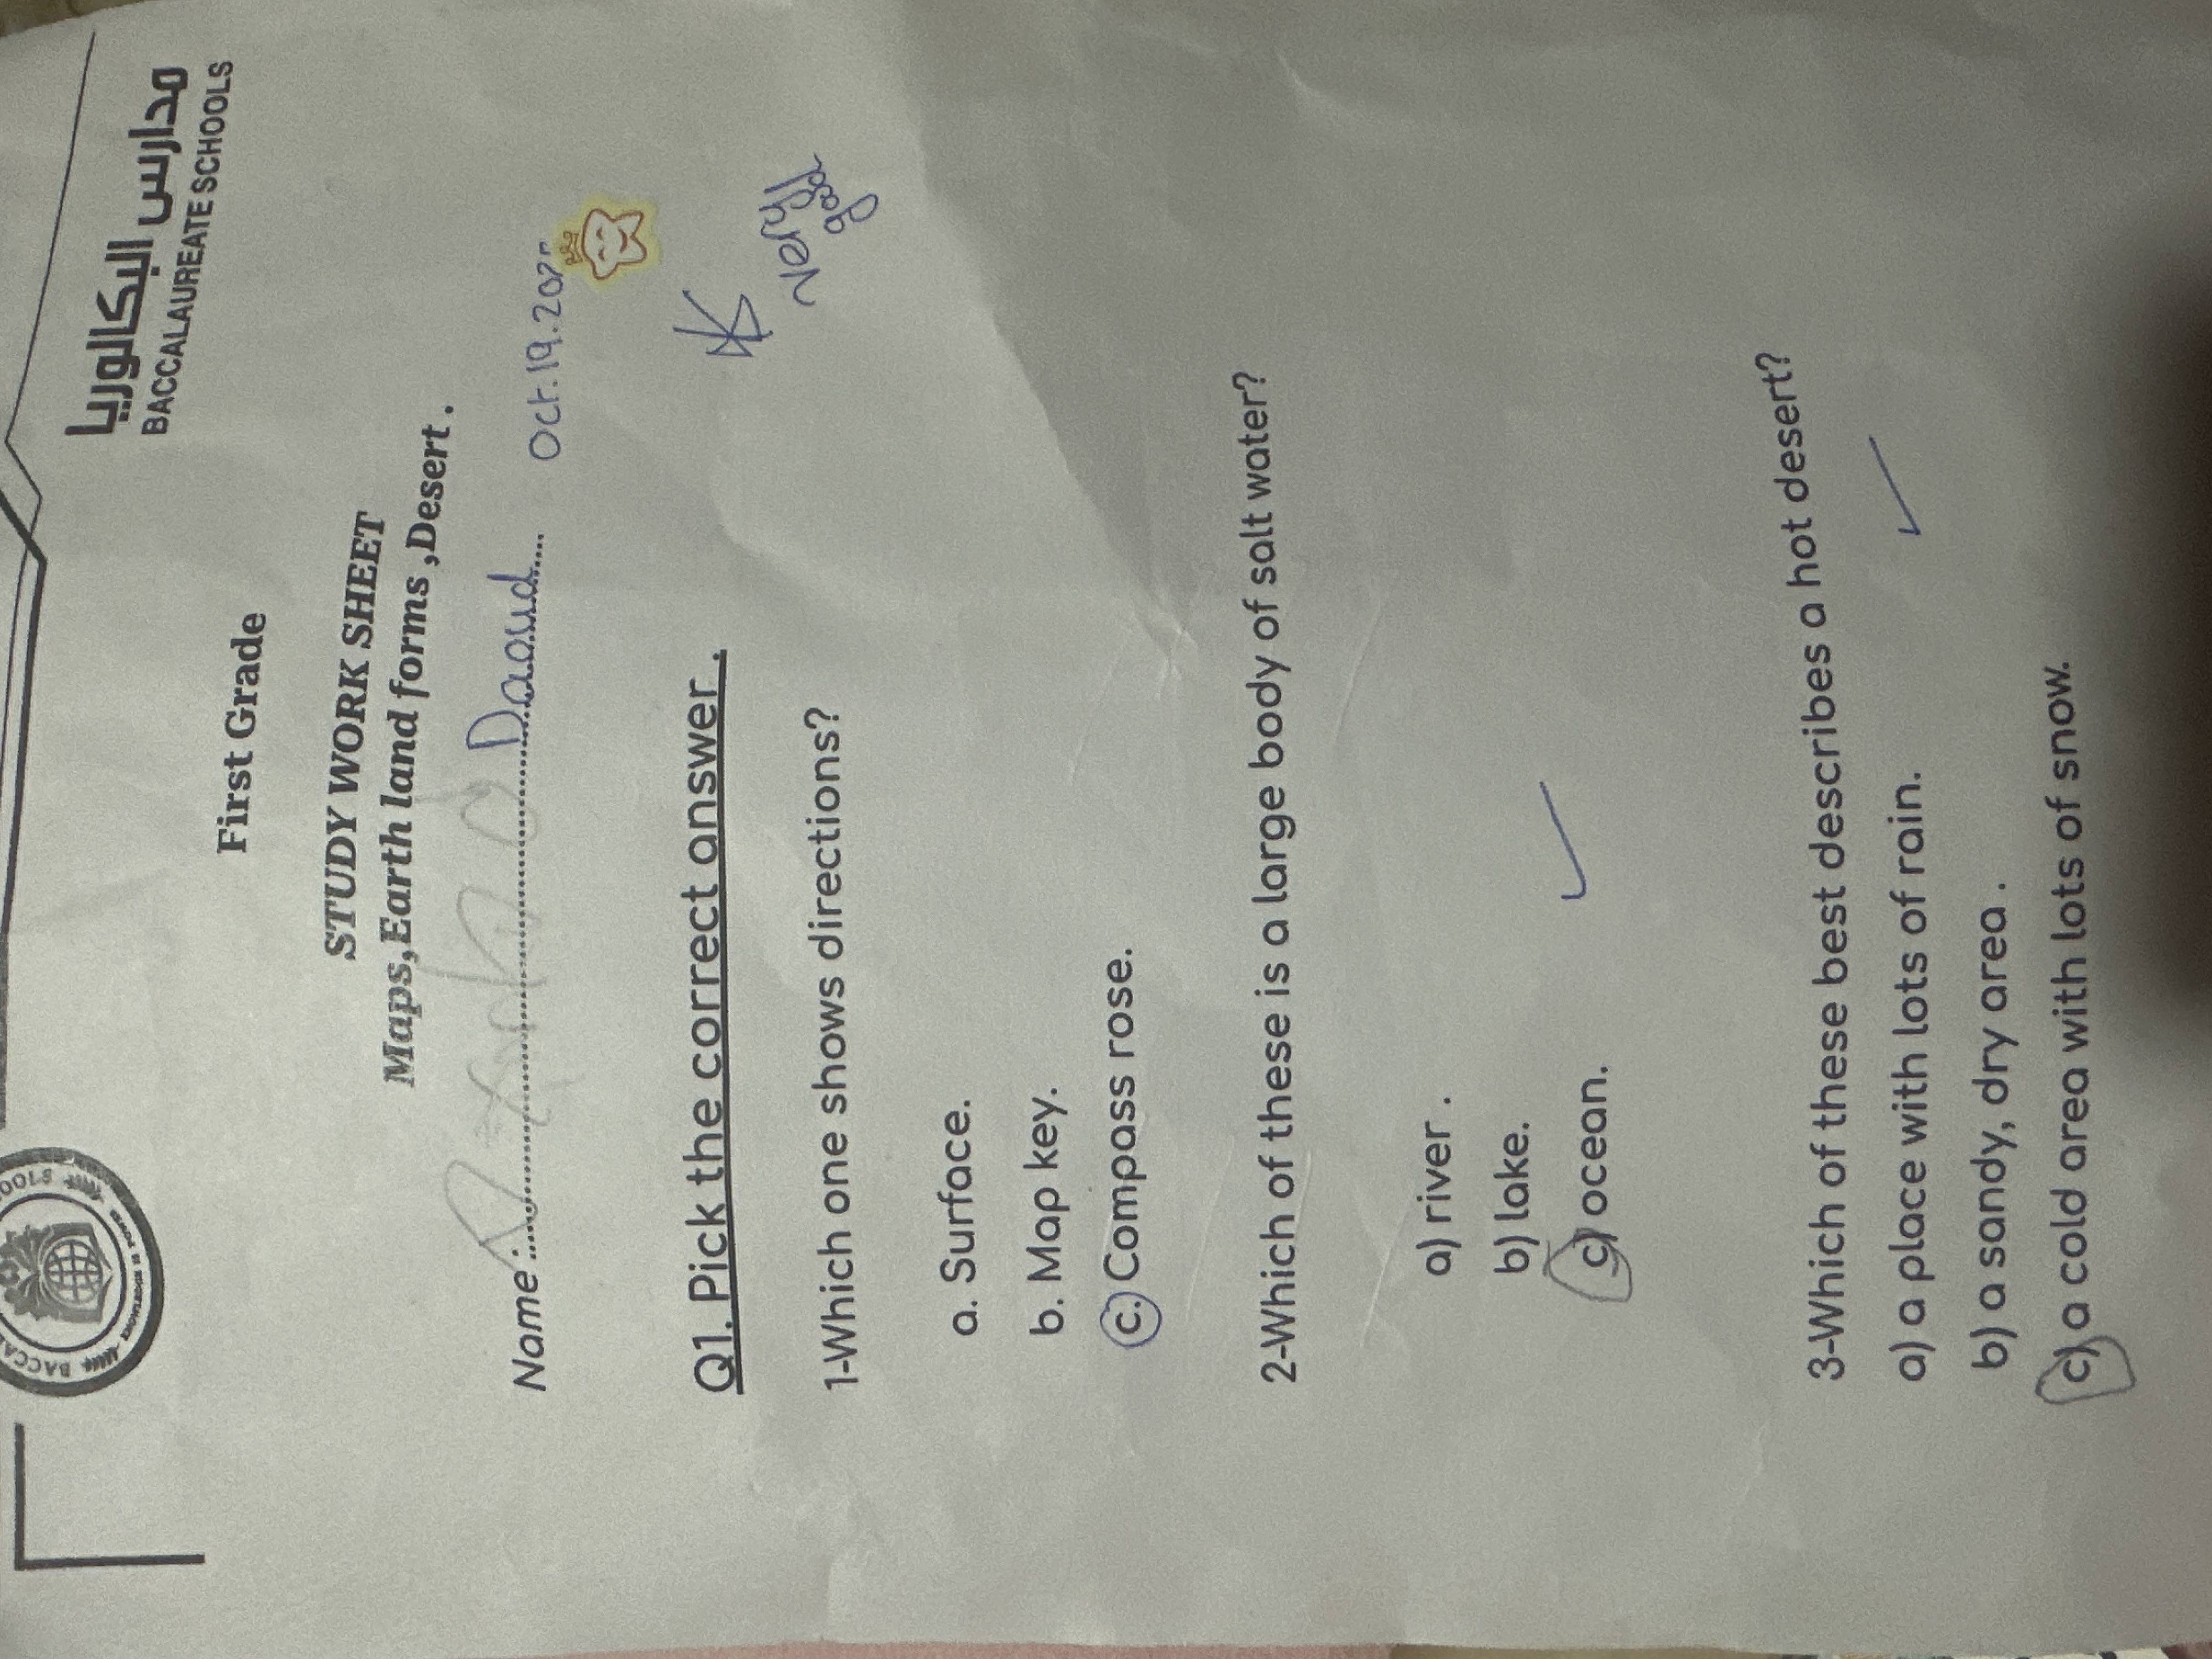 مدارس البكالوريا
BACCALAUREATE SCHOOLS
First Grade
STUDY WORK SHEET
Maps,Earth land forms ,Desert .
Name : Daoud
Oct.19.202
Very
good
Q1. Pick the correct answer .
1-Which one shows directions?
a. Surface.
b. Map key.
c. Compass rose.
2-Which of these is a large body of salt water?
a) river .
b) lake.
c) ocean.
3-Which of these best describes a hot desert?
a) a place with lots of rain.
b) a sandy, dry area .
c) a cold area with lots of snow.